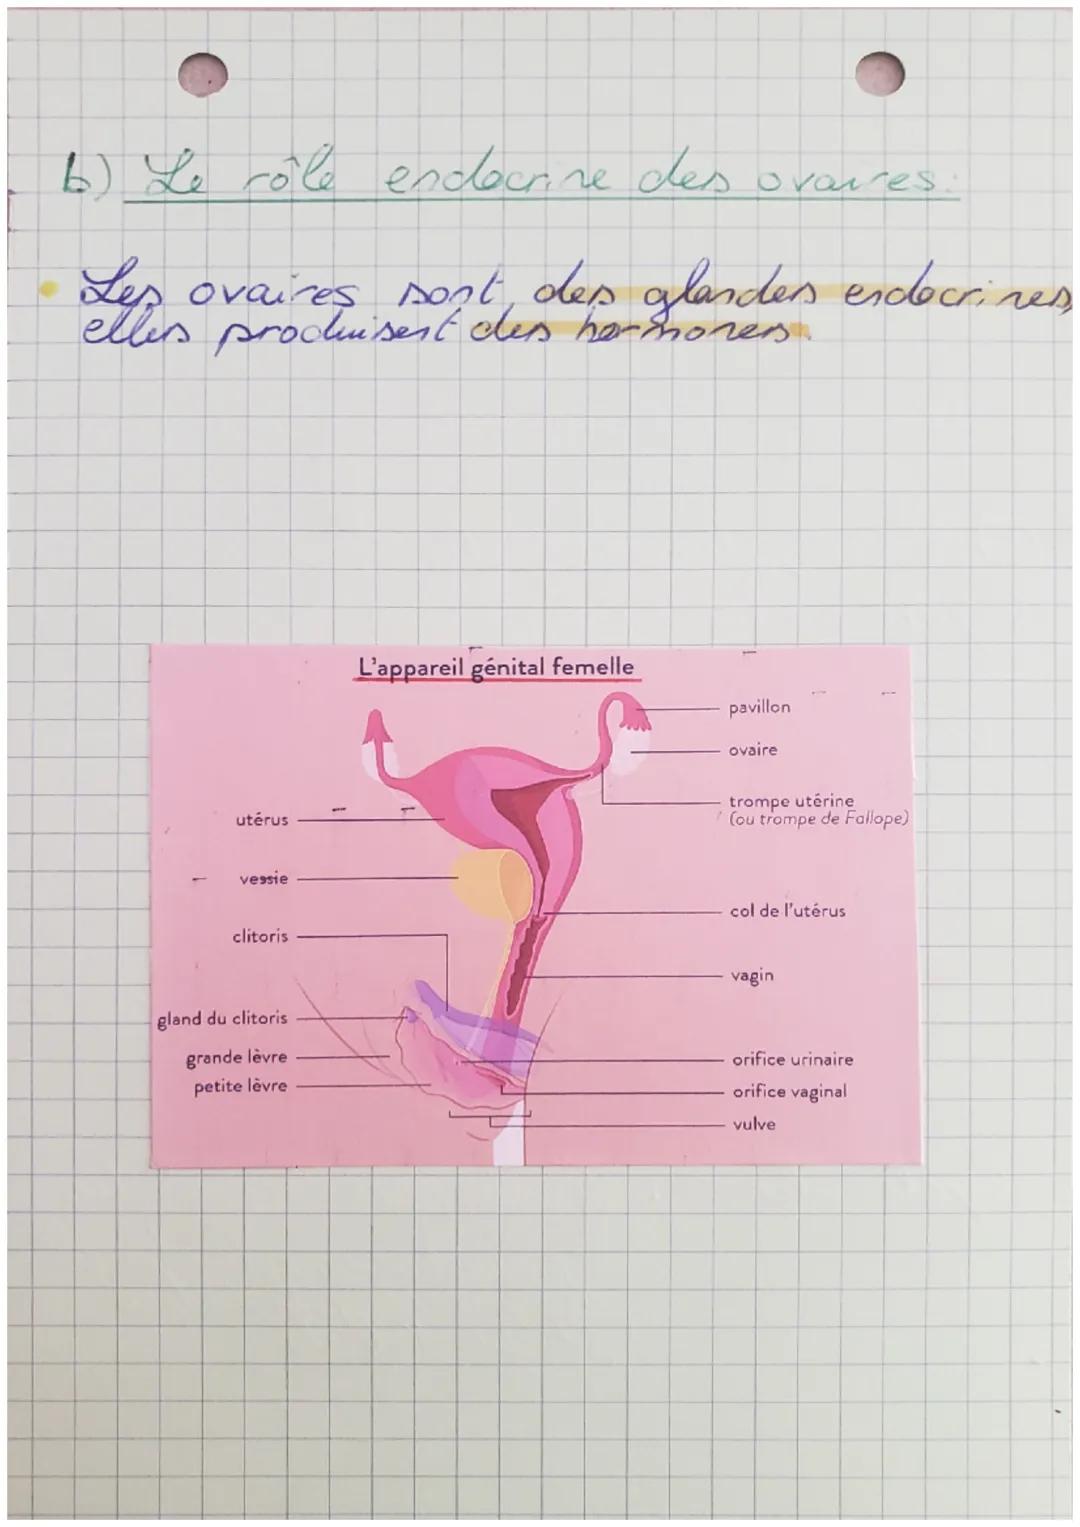 b) Le rôle endocrine des ovaires:
Les ovaires sont des glandes endocrines,
elles produisent des hormones.
L'appareil génital femelle
pavillon
ovaire
trompe utérine
(ou trompe de Fallope)
utérus
vessie
clitoris
col de l'utérus
vagin
gland du clitoris
grande lèvre
petite lèvre
orifice urinaire
orifice vaginal
vulve